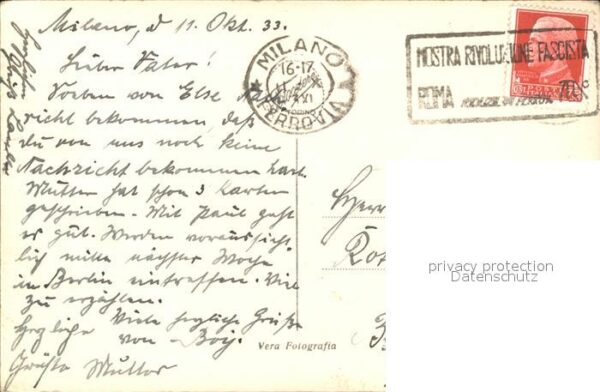 Milano, d 11. Okt. 33.
Lieber Vater!
Soeben von Else Nach
richt bekommen, daß
du von uns noch keine
Nachricht bekommen hast.
Mutter hat schon 3 Karten
geschrieben. Mit Paul geht
es gut. Werden voraussicht
lich mitte nächster Woche
in Berlin eintreffen. Viel
zu erzählen.
Viele herzliche Grüße
von
Herzliche
Grüße Mutter
MILANO
16-17
FERROVIA
MOSTRA RIVOLUZIONE FASCISTA
ROMA
70%
Herr
Vera Fotografia
privacy protection
Datenschutz